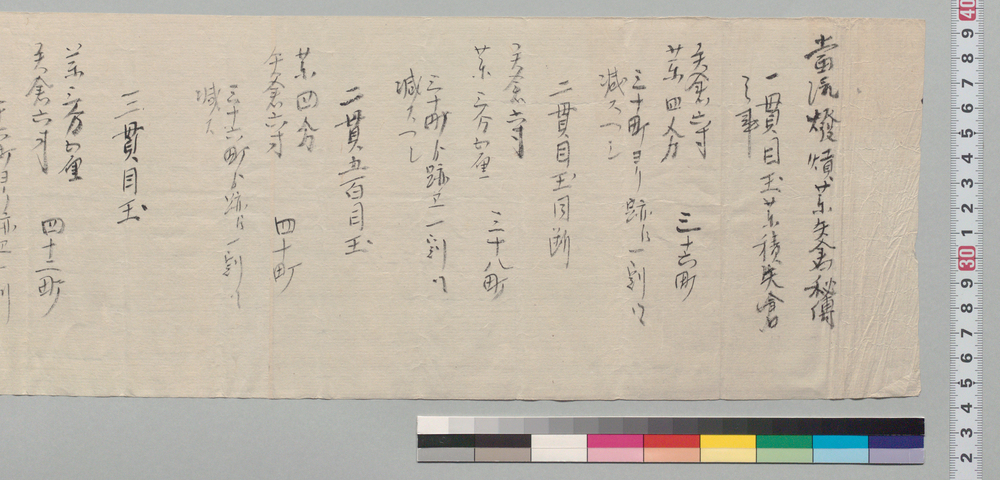 當流熢熕業矢倉秘傳
一貫目玉業積矢倉
之事
矢倉六寸
業四分 三十六町
三十町ヨリ跡ハ一割ツヽ
減スヘシ
二貫目玉同断
矢倉六寸
業三分五厘 三十八町
三十町ヨリ跡ヱ一割ツヽ
減スヘシ
二貫五百目玉
業四分
矢倉六寸 四十町
三十六町ヨリ跡ハ一割ツヽ
減ス
一三貫目玉
業三分五厘
矢倉六寸 四十二町